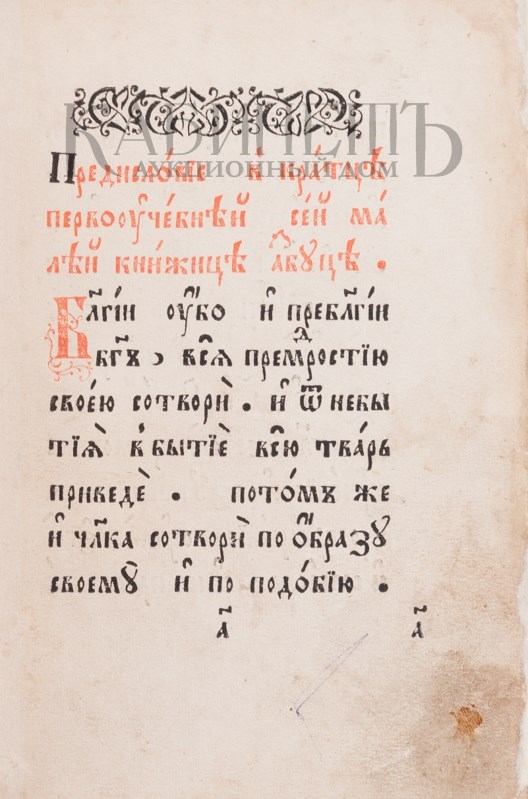 КАБИНЕТЪ
АУКЦИОННЫЙ ДОМ
Предисло́вие в кра́тцѣ
первоꙋче́бнѣй се́й ма́
лѣй кни́жицѣ а҆́збꙋцѣ .
Бл҃гі́и ᲂу҆́бо и҆ пребл҃гі́и
бг҃ъ , всѧ̀ премⷣростїю
свое́ю сотворѝ . и҆ ѿ небы
тїѧ̀ в бытїѐ всю̀ тва́рь
приведѐ . пото́мъ же
и҆ чл҃ка сотворѝ по ѻ҆́бразꙋ
своемꙋ̀ и҆ по подо́бїю .
а҃ а҃